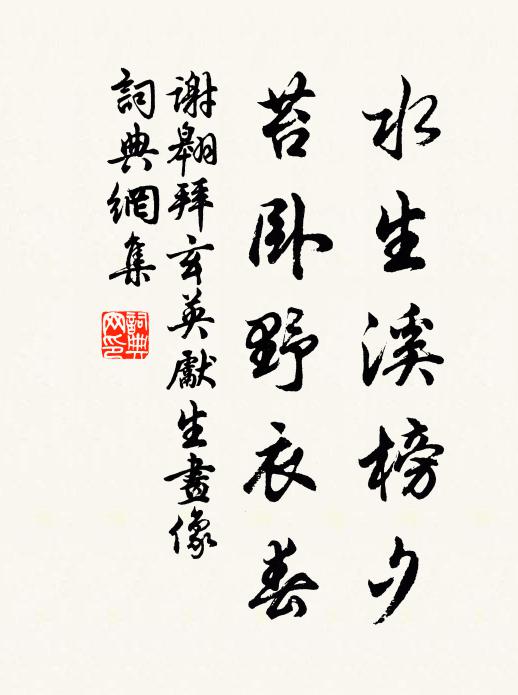 水生溪榜夕
苔卧野衣春
謝翱拜玄英獻生畫像
詞典網集
詞典網印